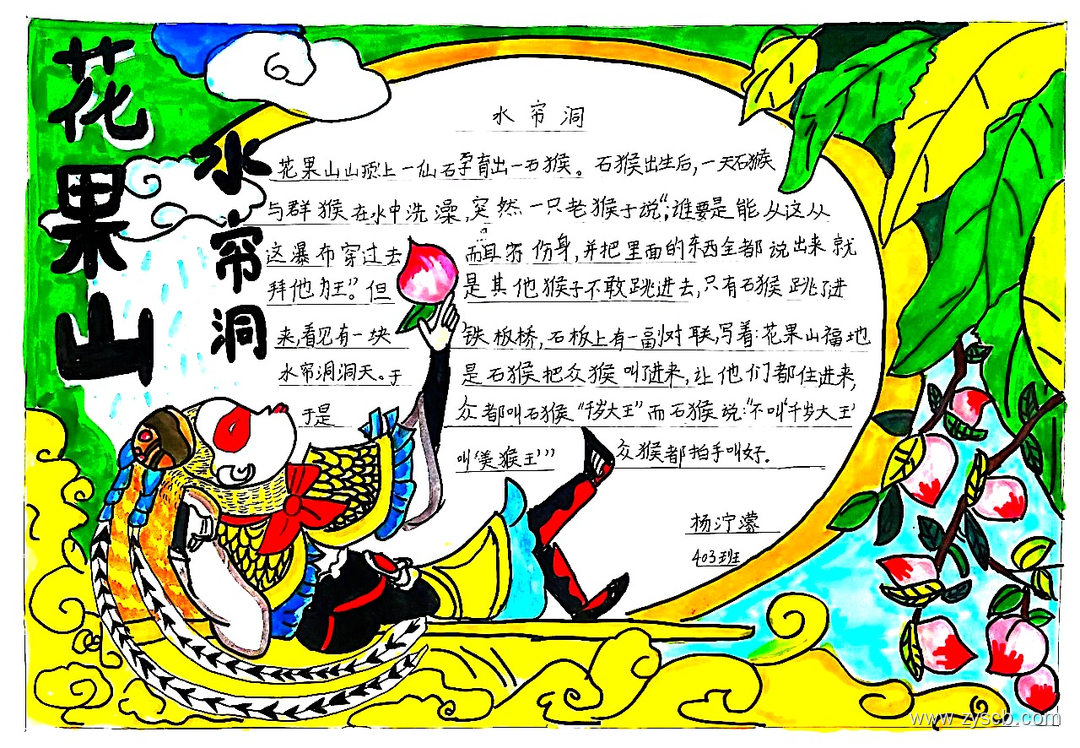 花果山
水帘洞
水帘洞
花果山山顶上一仙石孕育出一石猴。石猴出生后,一天石猴
与群猴在水中洗澡,突然一只老猴子说“;谁要是能从这从
这瀑布穿过去 而且不伤身,并把里面的东西全都说出来就
拜他为王”。但 是其他猴子不敢跳进去,只有石猴跳了进
来,看见有一块 铁板桥,石板上有一副对联,写着:花果山福地
水帘洞洞天。于 是石猴把众猴叫了进来,让他们都住进来,
于是 众都叫石猴“千岁大王”而石猴说:“不叫‘千岁大王’
叫‘美猴王’” 众猴都拍手叫好.
杨泞濛
403班
www.zyscb.com